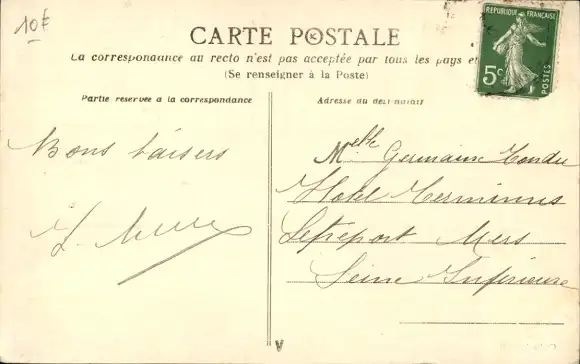 10€
CARTE POSTALE
La correspondance au recto n'est pas acceptée par tous les pays et
(Se renseigner à la Poste)
REPUBLIQUE FRANÇAISE
5c
POSTES
Partie réservée à la correspondance
Adresse du destinataire
Bons baisers
Melle Germaine
Hotel Terminus
Letréport Mers
Seine Inférieure